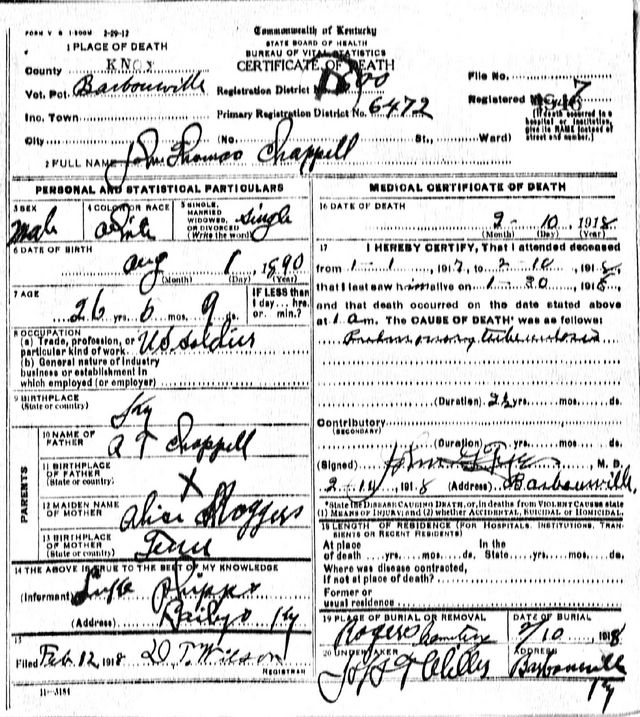 FORM V S 1-500M 2-29-12
Commonwealth of Kentucky
STATE BOARD OF HEALTH
BUREAU OF VITAL STATISTICS
CERTIFICATE OF DEATH
1 PLACE OF DEATH
County KNOX
Vot. Pct. Barbourville
Registration District No. 
File No.
Registered No. 7
Inc. Town
Primary Registration District No. 6472
(If death occurred in a
hospital or institution,
give its NAME instead of
street and number.)
City (No. St., Ward)
2 FULL NAME John Thomas Chappell
PERSONAL AND STATISTICAL PARTICULARS
3 SEX
male
4 COLOR OR RACE
White
5 SINGLE,
MARRIED
WIDOWED,
OR DIVORCED
(Write the word)
single
6 DATE OF BIRTH
Aug 1, 1890
(Month) (Day) (Year)
7 AGE
26 yrs. 6 mos. 9 ds.
IF LESS than
1 day... hrs.
or... min.?
8 OCCUPATION
(a) Trade, profession, or
particular kind of work. US soldier
(b) General nature of industry
business or establishment in
which employed (or employer)
9 BIRTHPLACE
(State or country)
Ky
PARENTS
10 NAME OF
FATHER
A T Chappell
11 BIRTHPLACE
OF FATHER
(State or country)
X
12 MAIDEN NAME
OF MOTHER
Alice Roggers
13 BIRTHPLACE
OF MOTHER
(State or country)
Tenn
14 THE ABOVE IS TRUE TO THE BEST OF MY KNOWLEDGE
(Informant)
(Address) Ky
15
Filed Feb. 12 1918 D. T. Wilson
REGISTRAR
11-3184
MEDICAL CERTIFICATE OF DEATH
16 DATE OF DEATH
2 - 10, 1918
(Month) (Day) (Year)
17 I HEREBY CERTIFY, That I attended deceased
from 1-1, 1917, to 2-10, 1918,
that I last saw him alive on 1-30, 1918,
and that death occurred on the date stated above
at 1 am. The CAUSE OF DEATH* was as follows:
Pulmonary tuberculosis
(Duration) yrs. mos. ds.
Contributory
(SECONDARY)
(Duration) yrs. mos. ds.
(Signed) John M. D.
2-14, 1918 (Address) Barbourville
*State the DISEASE CAUSING DEATH, or, in deaths from VIOLENT CAUSES state
(1) MEANS OF INJURY; and (2) whether ACCIDENTAL, SUICIDAL or HOMICIDAL.
18 LENGTH OF RESIDENCE (FOR HOSPITALS, INSTITUTIONS, TRANSIENTS OR RECENT RESIDENTS)
At place In the
of death yrs. mos. ds. State yrs. mos. ds.
Where was disease contracted,
if not at place of death?
Former or
usual residence
19 PLACE OF BURIAL OR REMOVAL
Rogers Cemetery
DATE OF BURIAL
2/10 1918
20 UNDERTAKER
ADDRESS
Barbourville
Ky